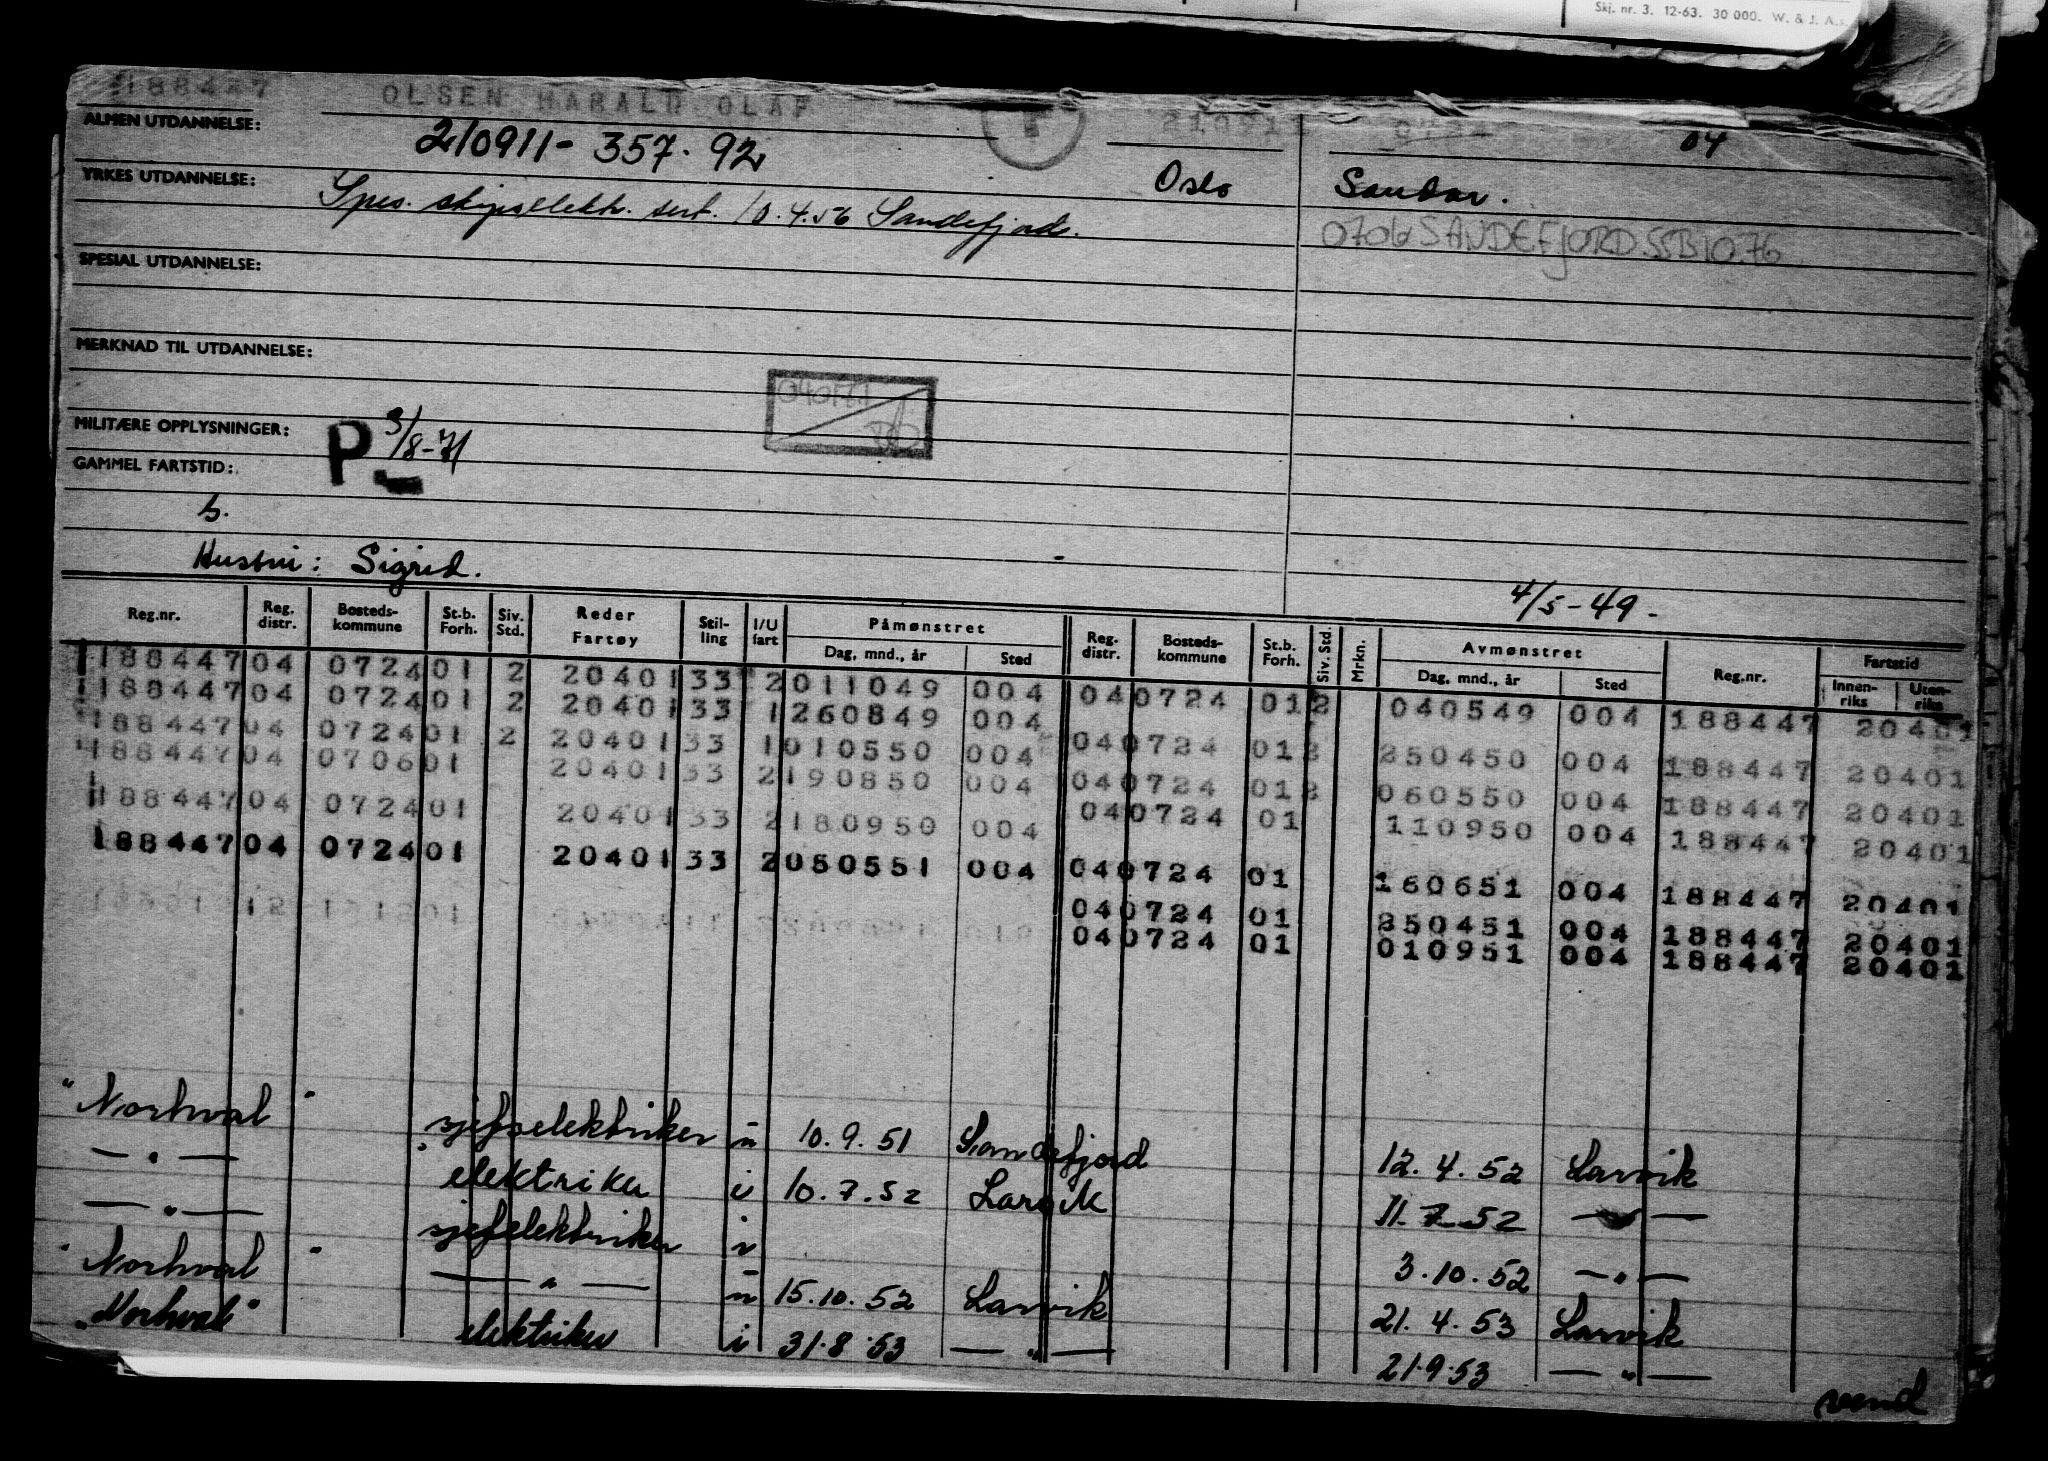 Skj. nr. 3. 12-63. 30 000. W. & J. A.
188447 OLSEN HARALD OLAF
ALMEN UTDANNELSE: 210911-357.92 04
YRKES UTDANNELSE: Spes. skipselektr. sert. 10.4.56 Sandefjord. Oslo Sandar.
0706 SANDEFJORD.SSB10.76
SPESIAL UTDANNELSE:
MERKNAD TIL UTDANNELSE:
040171
MILITÆRE OPPLYSNINGER: P 3/8-71
GAMMEL FARTSTID:
b.
Hustru: Sigrid.
4/5-49.
Reg.nr. Reg. distr. Bosteds-kommune St.b. Forh. Siv. Std. Reder Fartøy Stil-ling I/U fart Påmønstret Dag, mnd., år Sted Reg. distr. Bosteds-kommune St.b. Forh. Siv. Std. Mrkn. Avmønstret Dag, mnd., år Sted Reg.nr. Fartstid Innen-riks Uten-riks
188447 04 0724 01 2 20401 33 2 011049 004 04 0724 01 2 040549 004 188447 20401
188447 04 0724 01 2 20401 33 1 260849 004
188447 04 0724 01 2 20401 33 1 010550 004 04 0724 01 2 250450 004 188447 20401
188447 04 0706 01 20401 33 2 190850 004 04 0724 01 2 060550 004 188447 20401
188447 04 0724 01 20401 33 2 180950 004 04 0724 01 110950 004 188447 20401
188447 04 0724 01 20401 33 2 050551 004 04 0724 01 160651 004 188447 20401
04 0724 01 250451 004 188447 20401
04 0724 01 010951 004 188447 20401
"Norhval" sjefselektriker u 10.9.51 Sandefjord 12.4.52 Larvik
— " — elektriker i 10.7.52 Larvik 11.7.52 — " —
— " — sjefelektriker i 3.10.52 — " —
"Norhval" — " — u 15.10.52 Larvik 21.4.53 Larvik
"Norhval" elektriker i 31.8.53 — " — 21.9.53 — " —
vend